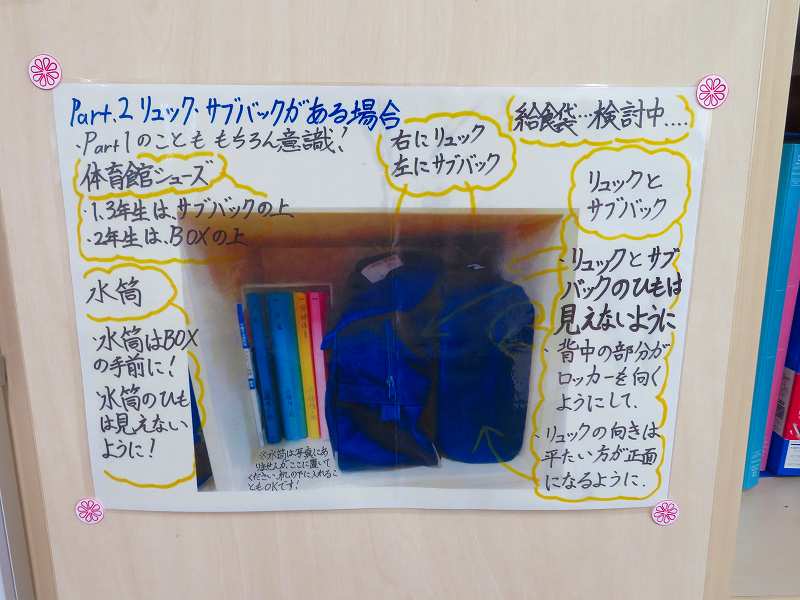 Part.2 リュック・サブバックがある場合
・Part1のことももちろん意識!
体育館シューズ
・1.3年生は、サブバックの上
・2年生は、BOXの上
水筒
・水筒はBOX
の手前に!
・水筒のひも
は見えない
ように!
右にリュック
左にサブバック
給食袋…検討中....
リュックと
サブバック
・リュックとサブ
バックのひもは
見えないように
・背中の部分が
ロッカーを向く
ようにして.
・リュックの向きは
平たい方が正面
になるように.
※水筒は写真にあ
りませんが、ここに置いて
ください。机の下に入れるこ
ともOKです!